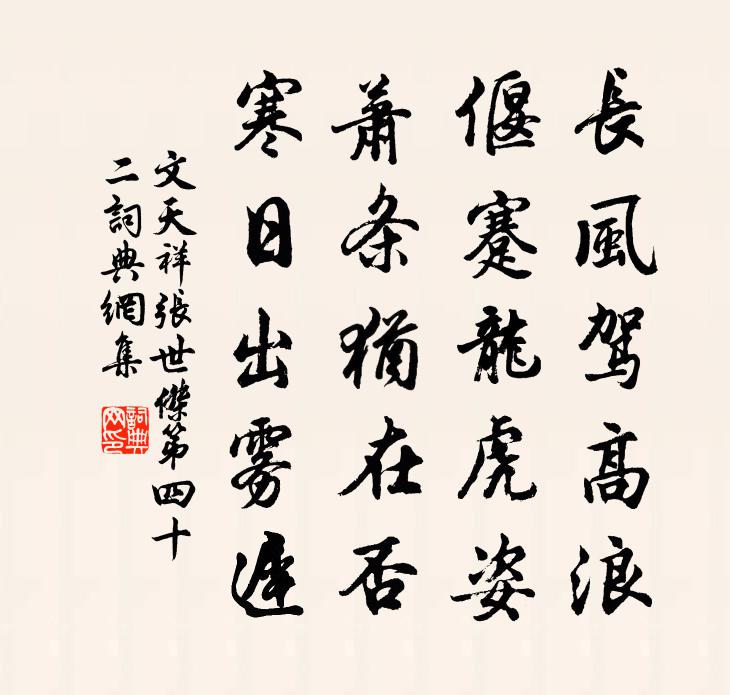 長風駕高浪
偃蹇龍虎姿
蕭条猶在否
寒日出雾遲
文天祥張世傑第四十
二詞典網集
詞典网印